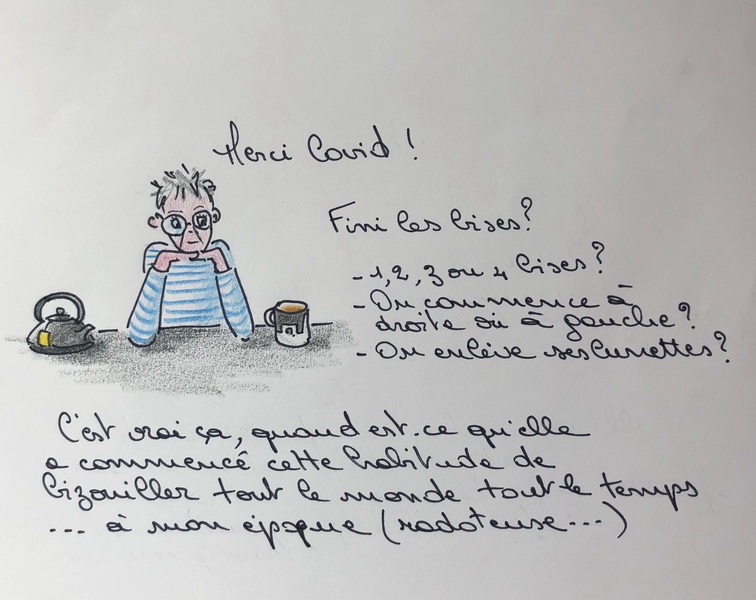 Merci Covid !
Fini les bises ?
- 1, 2, 3 ou 4 bises ?
- On commence à
droite où à gauche ?
- On enlève ses lunettes ?
C'est vrai ça, quand est-ce qu'elle
a commencé cette habitude de
bizouiller tout le monde tout le temps
... à mon époque (radoteuse...)